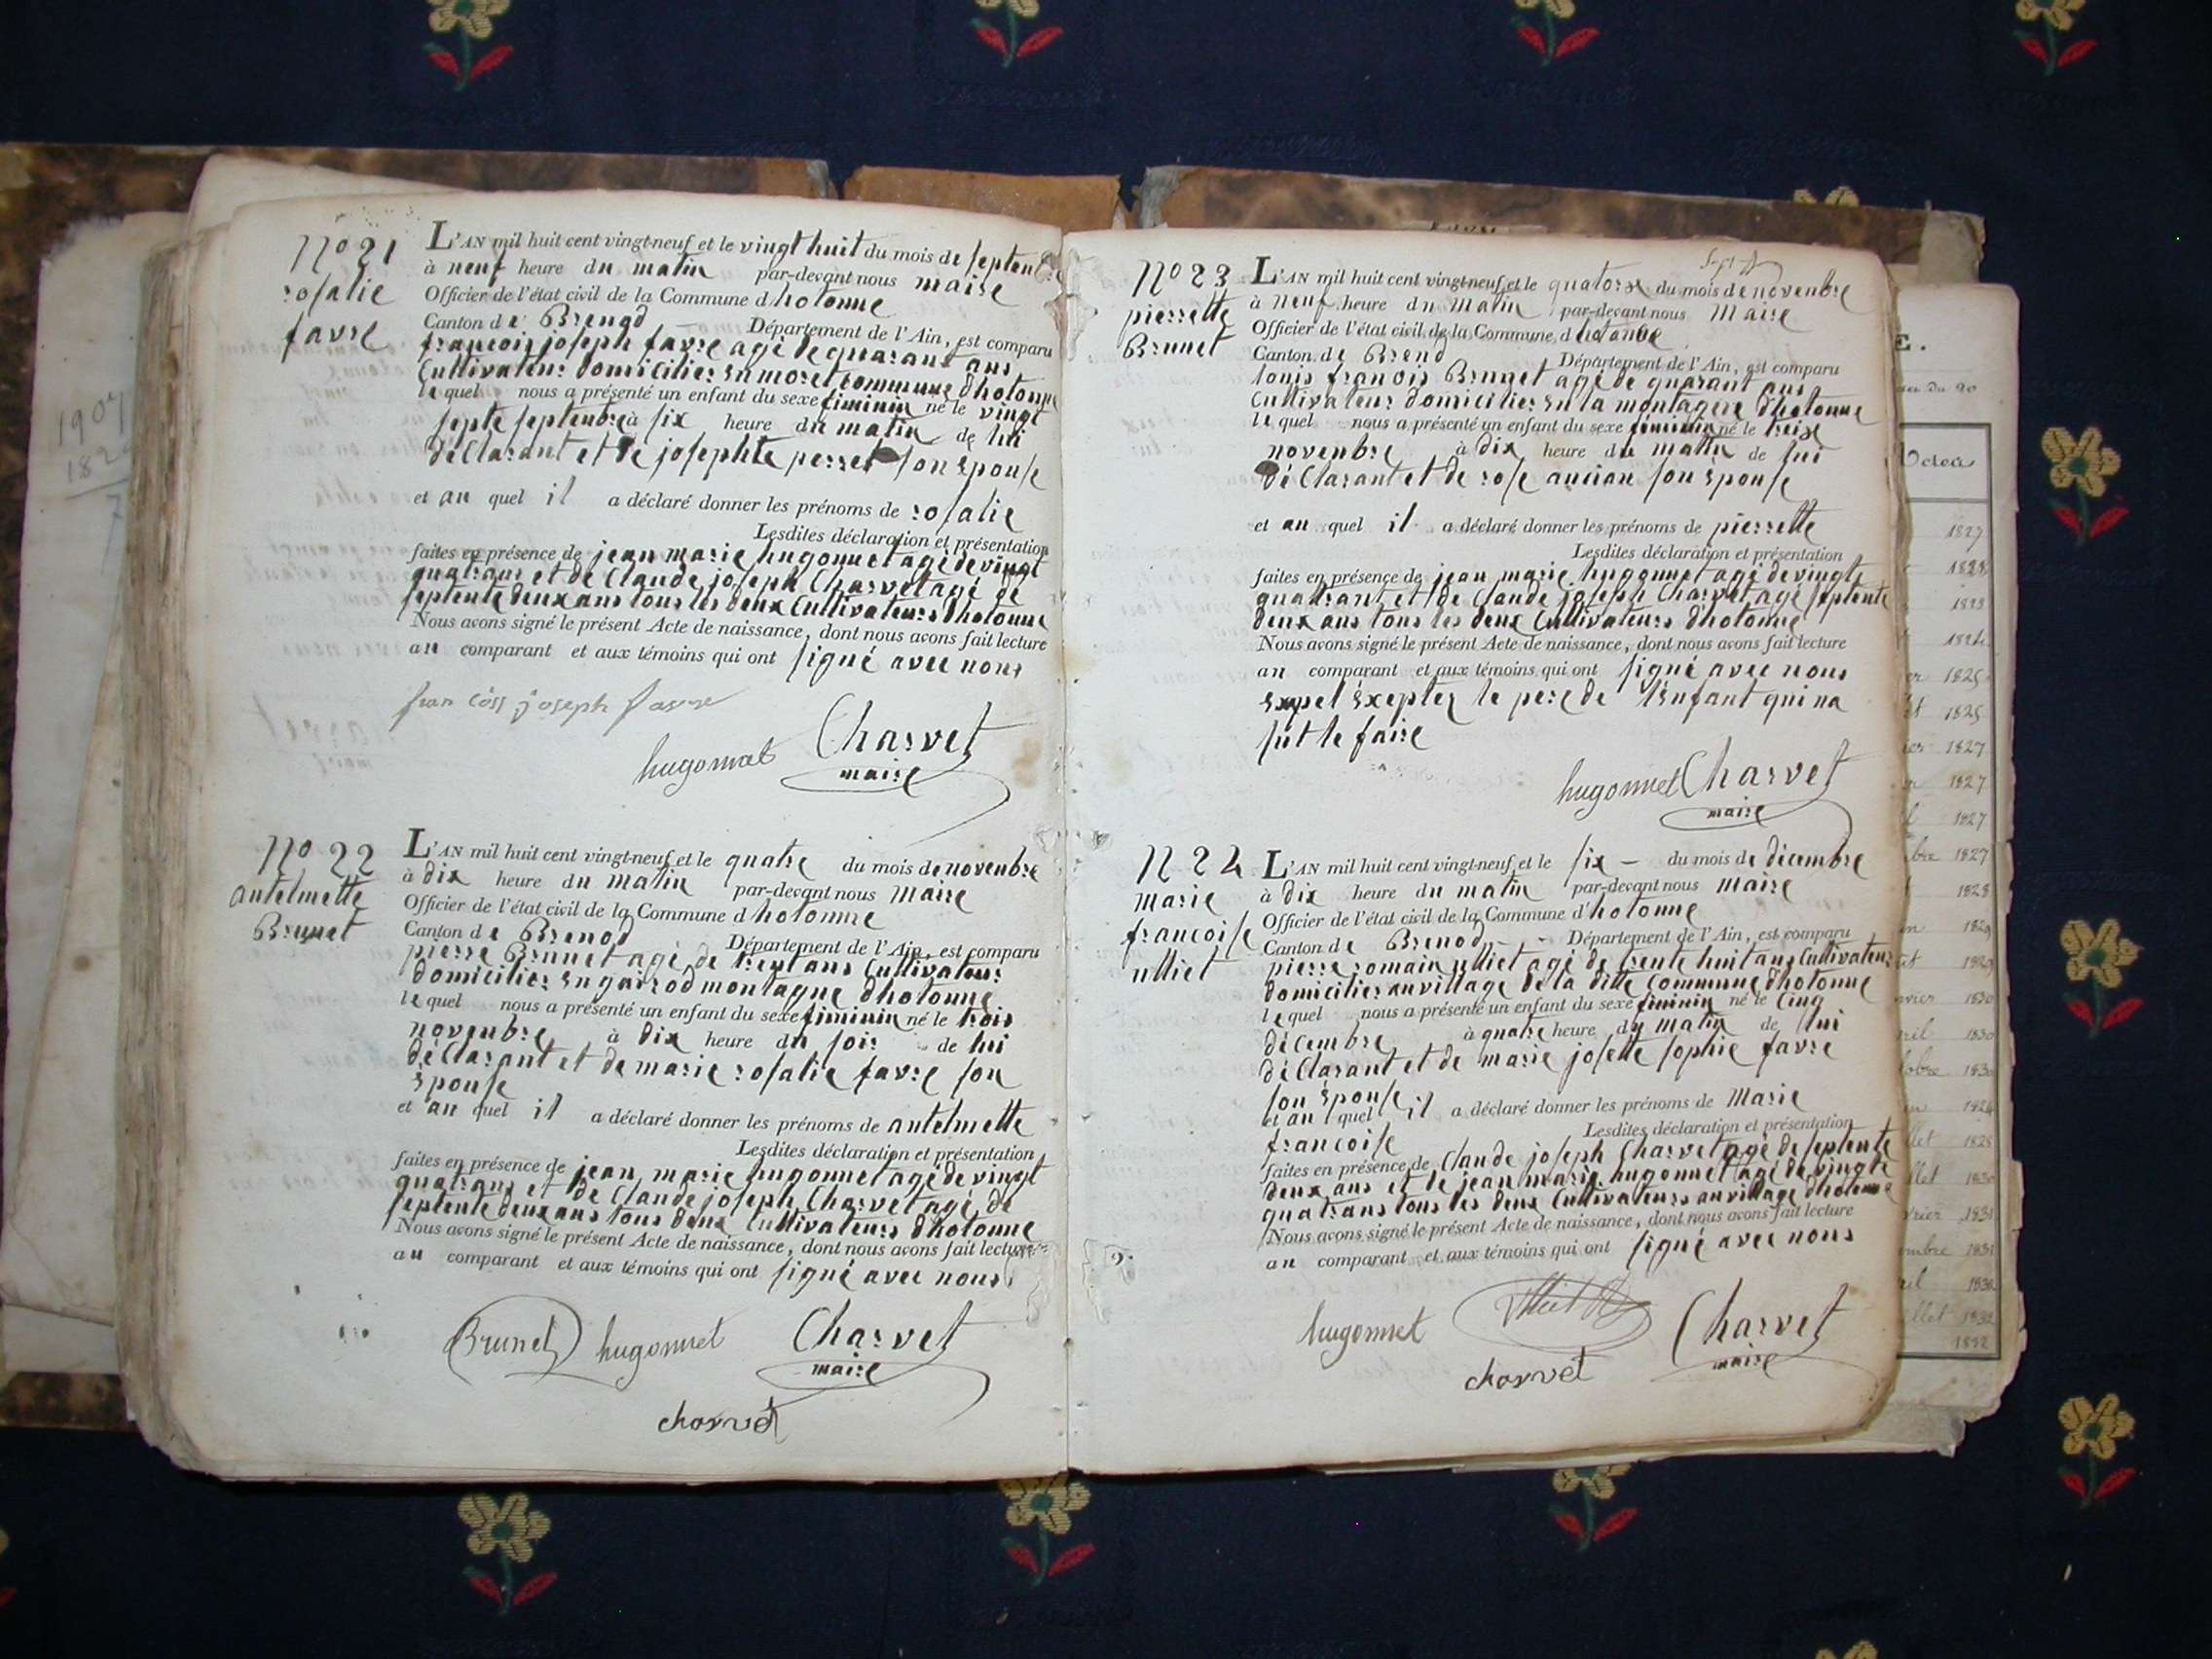 1907
182
7
N° 21
rosalie
favre
L'AN mil huit cent vingt-neuf et le vingt huit du mois de septenbre
à neuf heure du matin par-devant nous maire
Officier de l'état civil de la Commune d hotonne
Canton de Brenod Département de l'Ain, est comparu
francois joseph favre agé de quarant ans
Cultivateur domicilier en moret commune dhotonne
lequel nous a présenté un enfant du sexe féminin né le vingt
septe septenbre à six heure du matin de lui
déclarant et de josephte perret son épouse
et au quel il a déclaré donner les prénoms de rosalie
Lesdites déclaration et présentation
faites en présence de jean marie hugonnet agé de vingt
quatrans et de Claude joseph Charvet agé de
septente deux ans tous les deux Cultivateurs dhotonne
Nous avons signé le présent Acte de naissance, dont nous avons fait lecture
au comparant et aux témoins qui ont signé avec nous
fran coiss joseph favre
hugonnet Charvet
maire
N° 22
antelmette
Brunet
L'AN mil huit cent vingt-neuf et le quatre du mois de novenbre
à dix heure du matin par-devant nous maire
Officier de l'état civil de la Commune d hotonne
Canton de Brenod Département de l'Ain, est comparu
pierre Brunet agé de trent ans Cultivateur
domicilier en gairod montagne dhotonne
lequel nous a présenté un enfant du sexe féminin né le trois
novenbre à dix heure du soir de lui
déclarant et de marie rosalie favre son
épouse
et au quel il a déclaré donner les prénoms de antelmette
Lesdites déclaration et présentation
faites en présence de jean marie hugonnet agé de vingt
quatrans et de Claude joseph Charvet agé de
septente deux ans tous deux Cultivateurs dhotonne
Nous avons signé le présent Acte de naissance, dont nous avons fait lecture
au comparant et aux témoins qui ont signé avec nous
Brunet hugonnet Charvet
maire
charvet
N° 23
pierrette
Brunet
L'AN mil huit cent vingt-neuf et le quatorse du mois de novenbre
à neuf heure du matin par-devant nous Maire
Officier de l'état civil de la Commune d hotonne
Canton de Brend Département de l'Ain, est comparu
louis franois Brunet agé de quarant ans
Cultivateur domicilier en la montagne dhotonne
lequel nous a présenté un enfant du sexe féminin né le treise
novenbre à dix heure du matin de lui
déclarant et de rose ancian son épouse
et au quel il a déclaré donner les prénoms de pierrette
Lesdites déclaration et présentation
faites en présence de jean marie hugonnet agé de vingt
quatrant et de Claude joseph Charvet agé septente
deux ans tous les deux Cultivateurs dhotonne
Nous avons signé le présent Acte de naissance, dont nous avons fait lecture
au comparant et aux témoins qui ont signé avec nous
exepter le pere de l'enfant qui na
sut le faire
hugonnet Charvet
maire
N 24
marie
francoise
ulliet
L'AN mil huit cent vingt-neuf et le six - du mois de décembre
à dix heure du matin par-devant nous maire
Officier de l'état civil de la Commune d'hotonne
Canton de Brenod - Département de l'Ain, est comparu
pierre romain ulliet agé de trente huit ans Cultivateur
domicilier au village de la ditte Commune dhotonne
lequel nous a présenté un enfant du sexe féminin né le Cinq
décembre à quatre heure du matin de lui
déclarant et de marie josette sophie favre
son épouse
et au quel il a déclaré donner les prénoms de Marie
francoise Lesdites déclaration et présentation
faites en présence de Claude joseph Charvet agé de septente
deux ans et de jean marie hugonnet agé de vingte
quatrans tous les deux Cultivateurs au village dhotonne
Nous avons signé le présent Acte de naissance, dont nous avons fait lecture
au comparant et aux témoins qui ont signé avec nous
hugonnet Charvet
maire
charvet
9.
E.
1827
1828
1825
1825
1827
1827
1827
1827
1828
1829
1829
1830
1830
1830
1830
1831
1831
1832